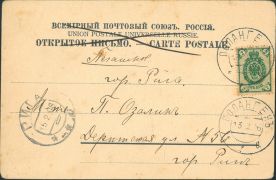 ВСЕМІРНЫЙ ПОЧТОВЫЙ СОЮЗЪ. РОССІЯ.
UNION POSTALE UNIVERSELLE. RUSSIE.
ОТКРЫТОЕ ПИСЬМО. — CARTE POSTALE.
гор. Рига
П. Озалинъ
Дерптская ул. № 56
гор. Рига
ПОЛАНГЕНЪ
РИГА